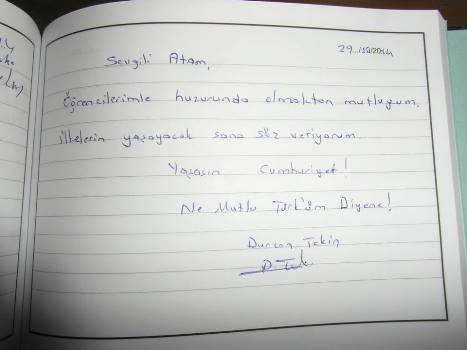 29/10/2014
Sevgili Atam,
Öğrencilerimle huzurunda olmaktan mutluyum.
ilkelerin yaşayacak sana söz veriyorum.
Yaşasın Cumhuriyet!
Ne Mutlu Türk'üm Diyene!
Durcan Tekin